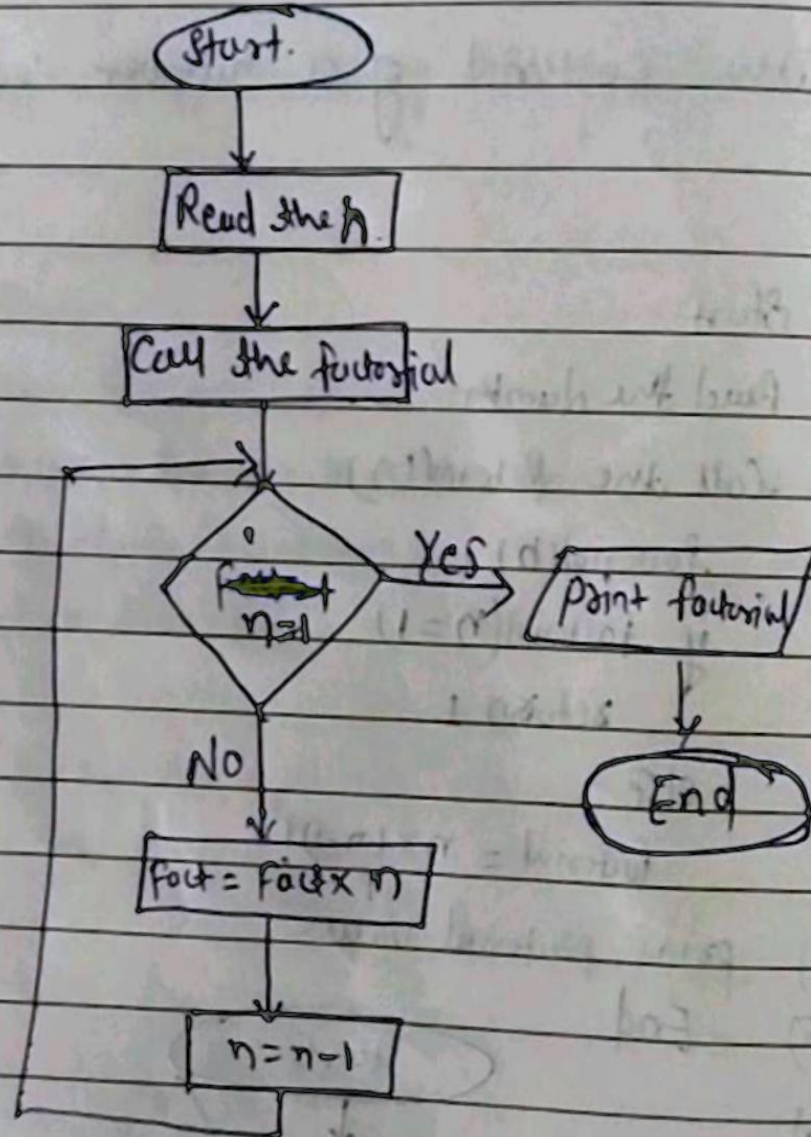 Start.
Read the n.
Call the factorial
n=1
Yes
print factorial
End
NO
fact = fact x n
n=n-1